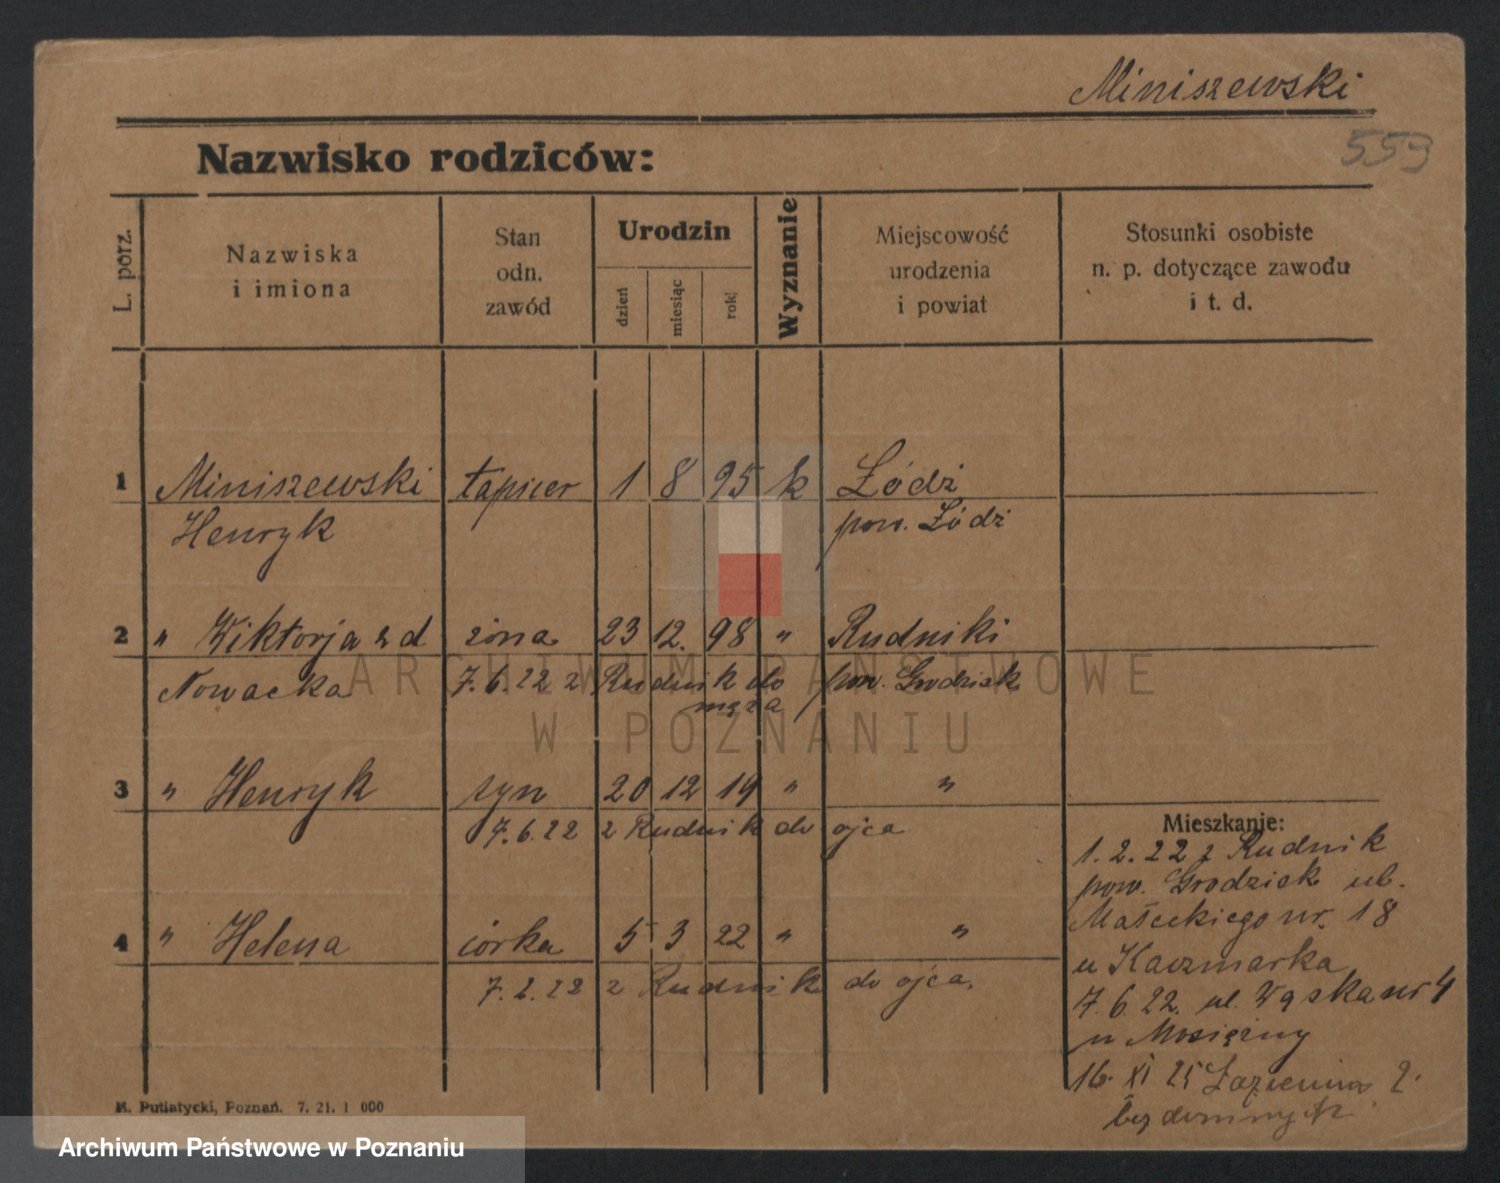 Miniszewski
553
Nazwisko rodziców:
L. porz.
Nazwiska
i imiona
Stan
odn.
zawód
Urodzin
dzień
miesiąc
rok
Wyznanie
Miejscowość
urodzenia
i powiat
Stosunki osobiste
n. p. dotyczące zawodu
i t. d.
1 Miniszewski tapicer 1 8 95 k Łódź
Henryk pow. Łódź
2 " Wiktorja z d żona 23 12. 98 " Rudniki
Nowacka 7.6.22 z Rudnik do pow. Grodzisk
męża
3 " Henryk syn 20 12 19 " "
7.6.22 z Rudnik do ojca
4 " Helena córka 5 3 22 " "
7.2.22 z Rudnik do ojca.
Mieszkanie:
1.2.22 z Rudnik
pow. Grodzisk ul.
Małeckiego nr. 18
u Kaczmarka
7.6.22. ul. Wąska nr 4
u
16. XI 25 Łazienna 2.
bezdomnych
M. Putiatycki, Poznań. 7. 21. 1 000
ARCHIWUM PAŃSTWOWE
W POZNANIU
Archiwum Państwowe w Poznaniu